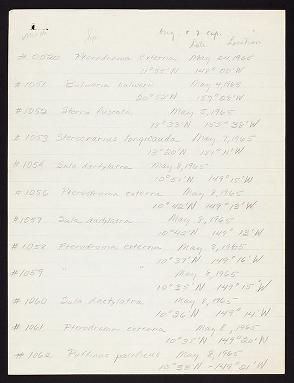 Sp. Date Location
#1050 Pterodroma externa May 24, 1965
148° 00'W
#1051 Bulweria bulweri May 4, 1965
20° 52'N 159° 08'W
#1052 Sterna fuscata May 5, 1965
#1053 Stercorarius longicauda May 7, 1965
13° 20'N 151° 11'W
#1054 Sula dactylatra May 8, 1965
10° 51'N 149° 15'W
#1056 Pterodroma externa May 8, 1965
10° 42'N 149° 13'W
#1057 Sula dactylatra May 8, 1965
10° 42'N 149° 13'W
#1058 Pterodroma externa May 8, 1965
10° 37'N 149° 16'W
#1059 " " May 8, 1965
10° 35'N 149° 15'W
#1060 Sula dactylatra May 8, 1965
10° 36'N 149° 14'W
#1061 Pterodroma externa May 8, 1965
10° 35'N 149° 20'W
#1062 Puffinus pacificus May 8, 1965
149° 21'W